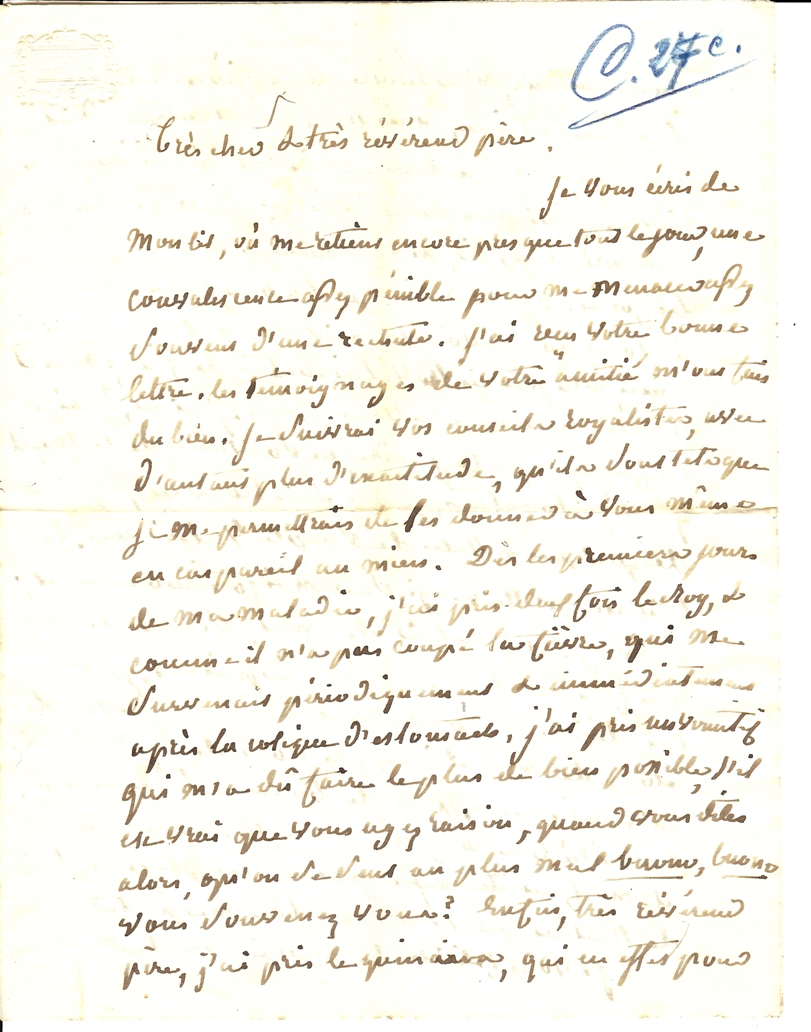 C. 27 c.
Très cher & très révérend père.
Je vous écris de
mon lit, où me retiens encore presque tout le jour, une
convalescence assez pénible pour me menacer assez
souvent d'une rechute. J'ai reçu votre bonne
lettre. les témoignages de votre amitié m'ont fais
du bien. Je suivrai vos conseils royalistes, avec
d'autans plus d'exactitude, qu'ils sont tels que
je me permettrais de les donner à vous même
en cas pareil au mien. Dès les premiers jours
de ma maladie, j'ai pris deux fois le Roy, &
comme il n'a pas coupé la fièvre, qui me
survenais périodiquement & immédiatement
après la colique d'estomac, j'ai pris un vomitif
qui m'a dû faire le plus de bien possible, s'il
est vrai que vous ayez raison, quand vous dites
alors, qu'on se sent au plus mal buono, buono
vous souvenez vous? Enfin, très révérend
père, j'ai pris le quinquina, qui en effet pour